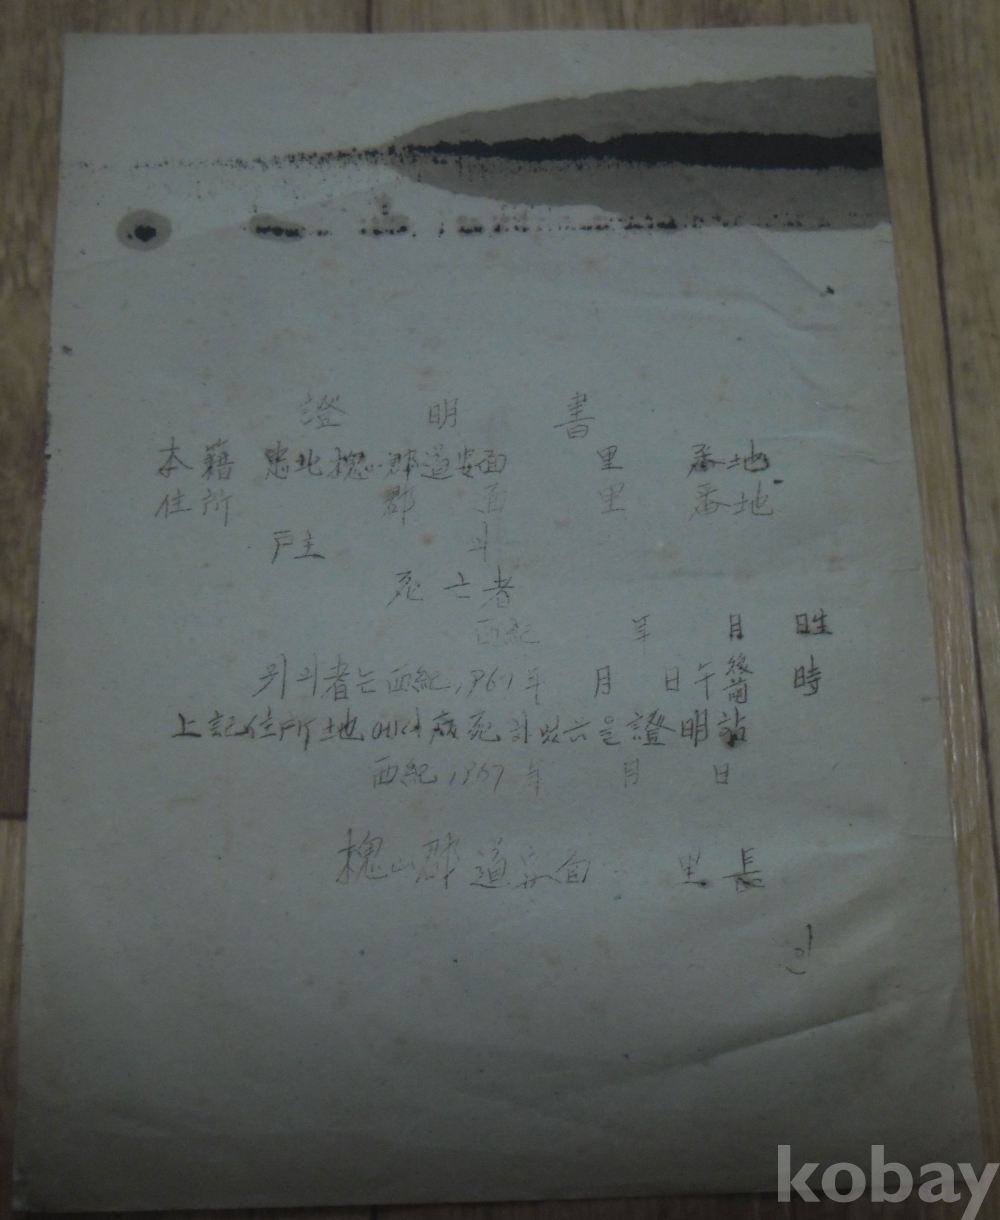 證 明 書
本籍 忠北槐山郡道安面 里 番地
住所 郡 面 里 番地
戶主 의
死亡者
西紀 年 月 日生
의者는 西紀 1967年 月 日午後前 時
上記住所地에서病死하였음을證明함
西紀 1967年 月 日
槐山郡 道安面 里長
인
kobay